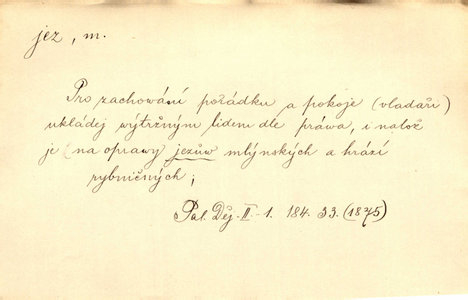 jez, m.
Pro zachování pořádku a pokoje (vladaři)
ukládej výtržným lidem dle práva, i nalož
je (na opravy jezův mlýnských a hrází
rybničných;
Pal. Děj. II. 1. 184. 33. (1875)